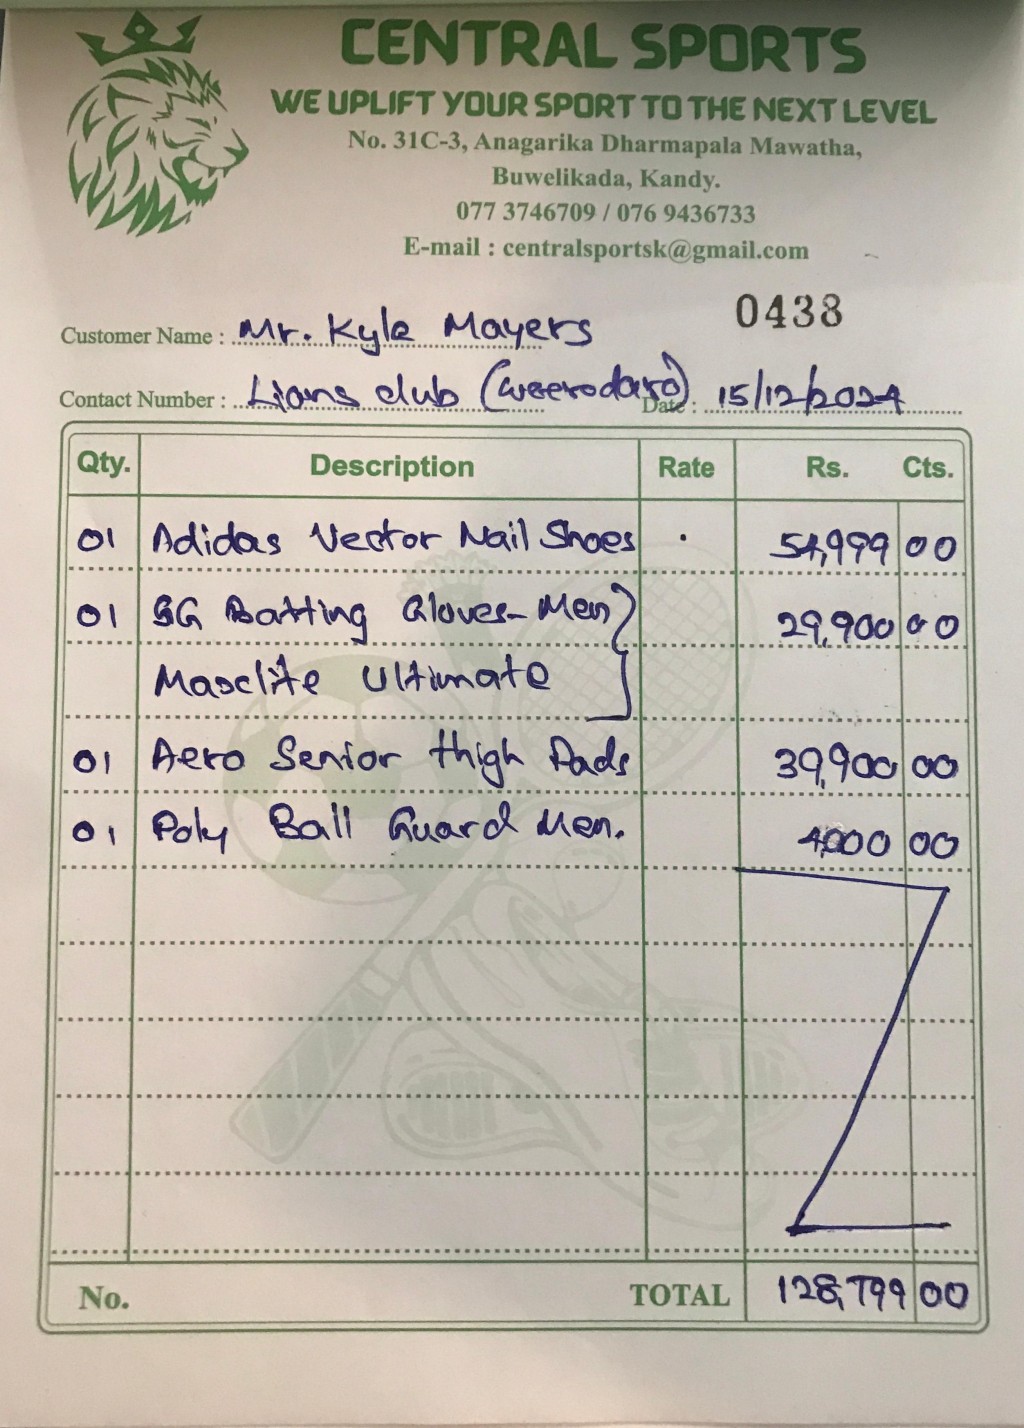 CENTRAL SPORTS
WE UPLIFT YOUR SPORT TO THE NEXT LEVEL
No. 31C-3, Anagarika Dharmapala Mawatha,
Buwelikada, Kandy.
077 3746709 / 076 9436733
E-mail : centralsportsk@gmail.com
0438
Customer Name : Mr. Kyle Mayers
Contact Number : Lions club Date : 15/12/2024
Qty. Description Rate Rs. Cts.
01 Adidas Vector Nail Shoes 54,999 00
01 SG Batting Gloves - Men 29,900 00
Ultimate
01 Aero Senior thigh Pads 39,900 00
01 Poly Ball Guard Men. 4,000 00
No. TOTAL 128,799 00